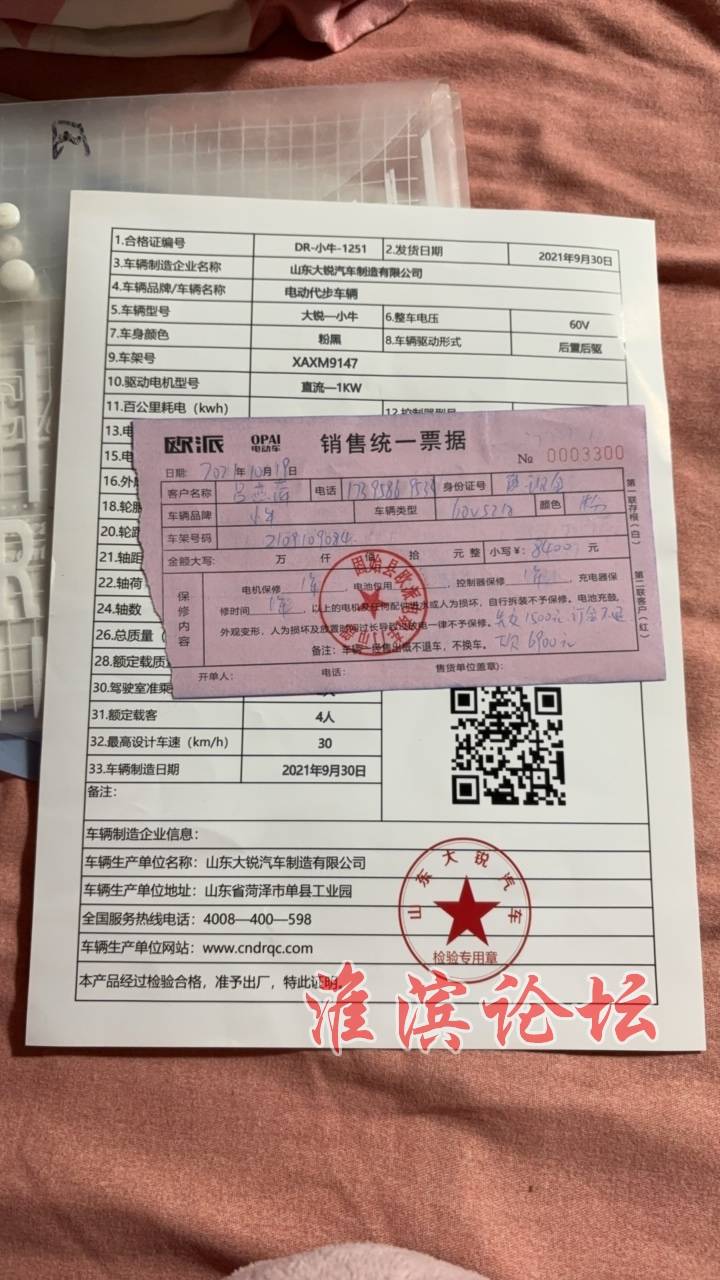 1.合格证编号 DR-小牛-1251 2.发货日期 2021年9月30日
3.车辆制造企业名称 山东大锐汽车制造有限公司
4.车辆品牌/车辆名称 电动代步车辆
5.车辆型号 大锐—小牛 6.整车电压 60V
7.车身颜色 粉黑 8.车辆驱动形式 后置后驱
9.车架号 XAXM9147
10.驱动电机型号 直流—1KW
11.百公里耗电（kwh）
13.电
15.电
16.外
18.轮
20.轮
21.轴距
22.轴荷
24.轴数
26.总质量（
28.额定载质
30.驾驶室准乘
31.额定载客 4人
32.最高设计车速（km/h） 30
33.车辆制造日期 2021年9月30日
备注：
欧派 OPAI 电动车 销售统一票据
№ 0003300
日期: 2021年10月19日
客户名称 电话 身份证号
车辆品牌 小牛 车辆类型 颜色 粉
车架号码
金额大写： 万 仟 佰 拾 元 整 小写￥: 8400 元
保修内容
电机保修 1年，电池仅用 ，控制器保修 1年，充电器保
修时间 1年，以上的电机及任何配件进水或人为损坏，自行拆装不予保修。电池充鼓，
外观变形，人为损坏及放置时间过长导致过放电一律不予保修。 1500元 订金不退
备注：车辆一经售出概不退车，不换车。 欠 6900元
开单人： 电话： 售货单位盖章）：
第一联存根（白）
第二联客户（红）
固始县欧派
车辆制造企业信息：
车辆生产单位名称：山东大锐汽车制造有限公司
车辆生产单位地址：山东省菏泽市单县工业园
全国服务热线电话：4008—400—598
车辆生产单位网站：www.cndrqc.com
本产品经过检验合格，准予出厂，特此证明。
山东大锐汽车
检验专用章
淮滨论坛